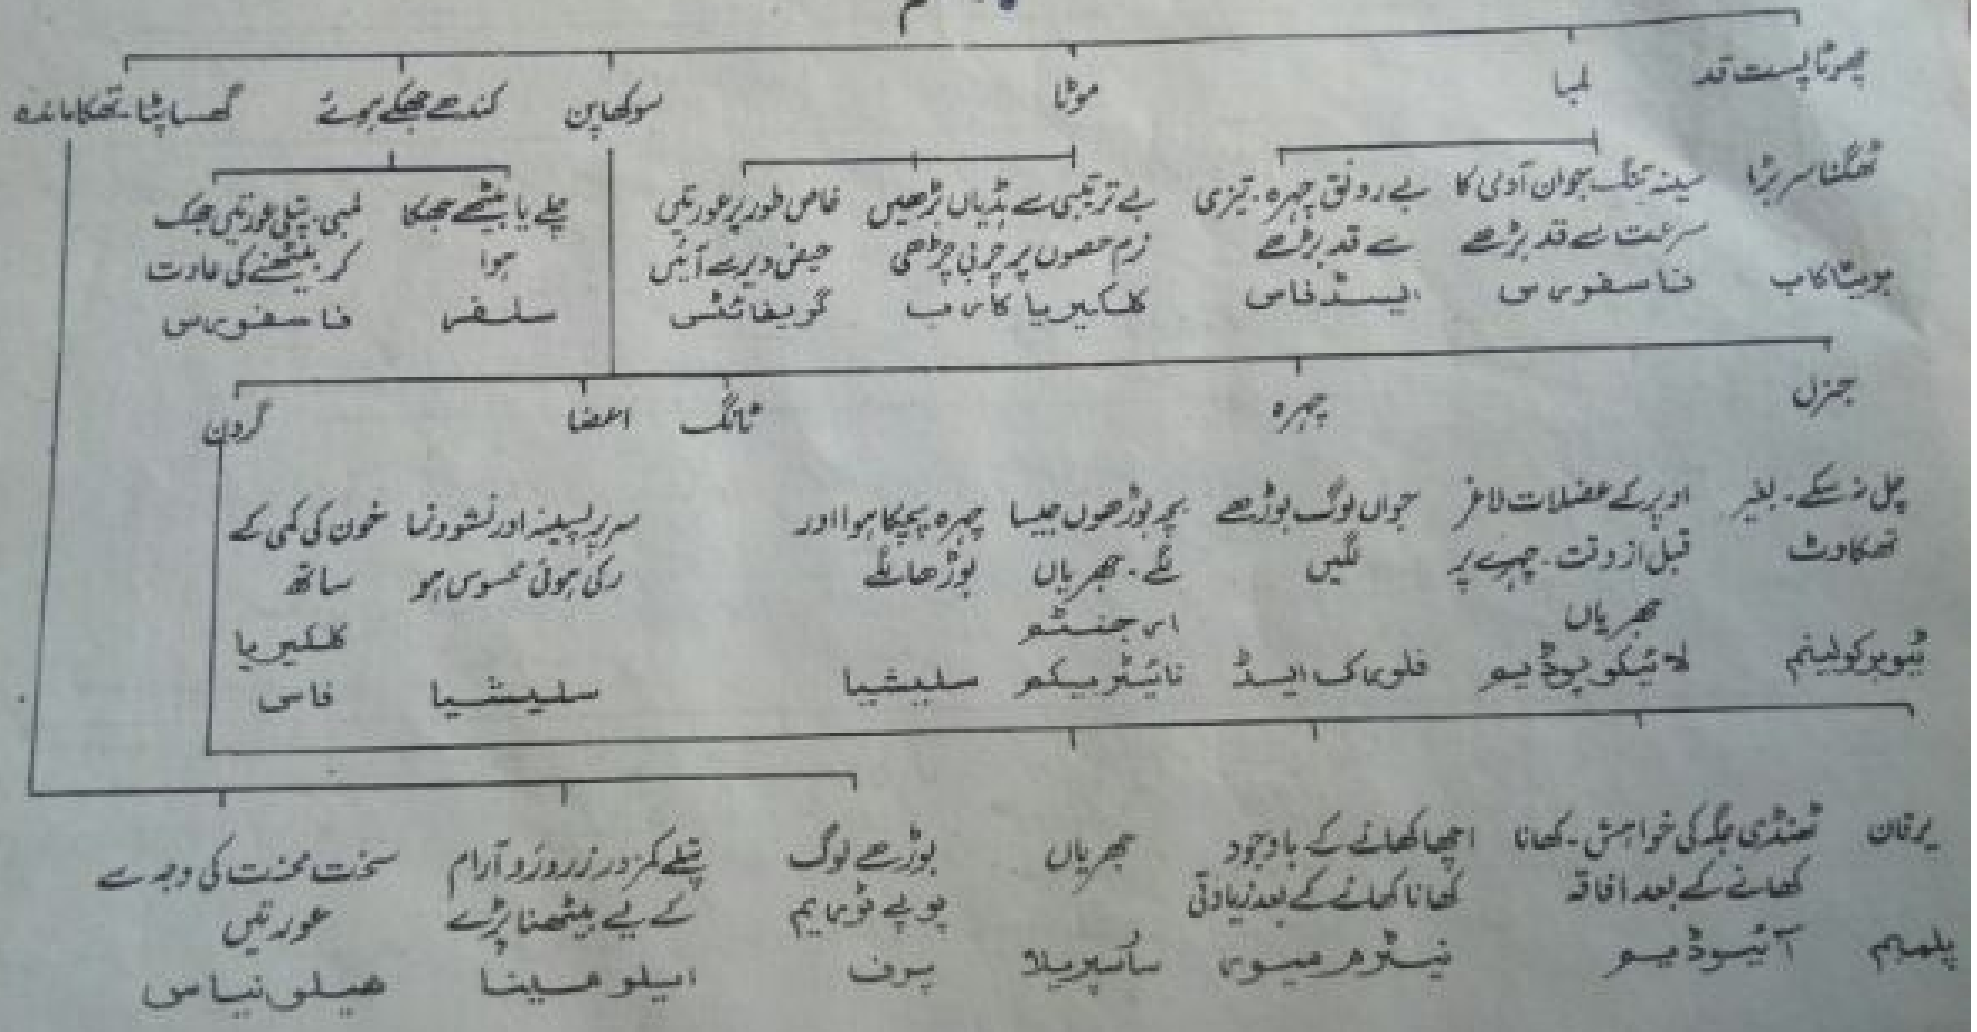 چھوٹا پست قد
لمبا
موٹا
سوکھاپن
کندھے جھکے ہوئے
گھسا پٹا۔تھکاماندہ
ٹھگنا سر بڑا
بریٹا کاب
سینہ تنگ جوان آدمی کا
سرعت سے قد بڑھے
فاسفورس
بے رونق چہرہ۔تیزی
سے قد بڑھے
ایسڈ فاس
بے ترتیبی سے ہڈیاں بڑھیں
نرم حصوں پر چربی چڑھی
کلکیریا کارب
خاص طور پر عورتیں
حیض دیر سے آئیں
گریفائٹس
چلے یا بیٹھے جھکا
ہوا
سلفر
لمبی۔پتلی عورتیں جھک
کر بیٹھنے کی عادت
فاسفورس
جنرل
چہرہ
ٹانگ
اعضا
گردن
چل نہ سکے۔بغیر
تھکاوٹ
ٹیوبرکولینم
اوپر کے عضلات لاغر
قبل از وقت۔چہرے پر
جھریاں
لائیکوپوڈیم
جواں لوگ بوڑھے
لگیں
فلورک ایسڈ
بچہ بوڑھوں جیسا
لگے۔جھریاں
ارجنٹم
نائیٹریکم
چہرہ پچکا ہوا اور
بوڑھا لگے
سلیشیا
سر پر پسینہ اور نشوونما
رکی ہوئی محسوس ہو
سلیشیا
خون کی کمی کے
ساتھ
کلکیریا
فاس
یرقان
پلمبم
ٹھنڈی جگہ کی خواہش۔کھانا
کھانے کے بعد افاقہ
آئیوڈیم
اچھا کھانے کے باوجود
کھانا کھانے کے بعد زیادتی
نیٹرم میور
جھریاں
سارسپریلا
بوڑھے لوگ
پتلے کمزور زرد رو آرام
کے لیے بیٹھنا پڑے
سخت محنت کی وجہ سے
عورتیں
ھیلونیاس